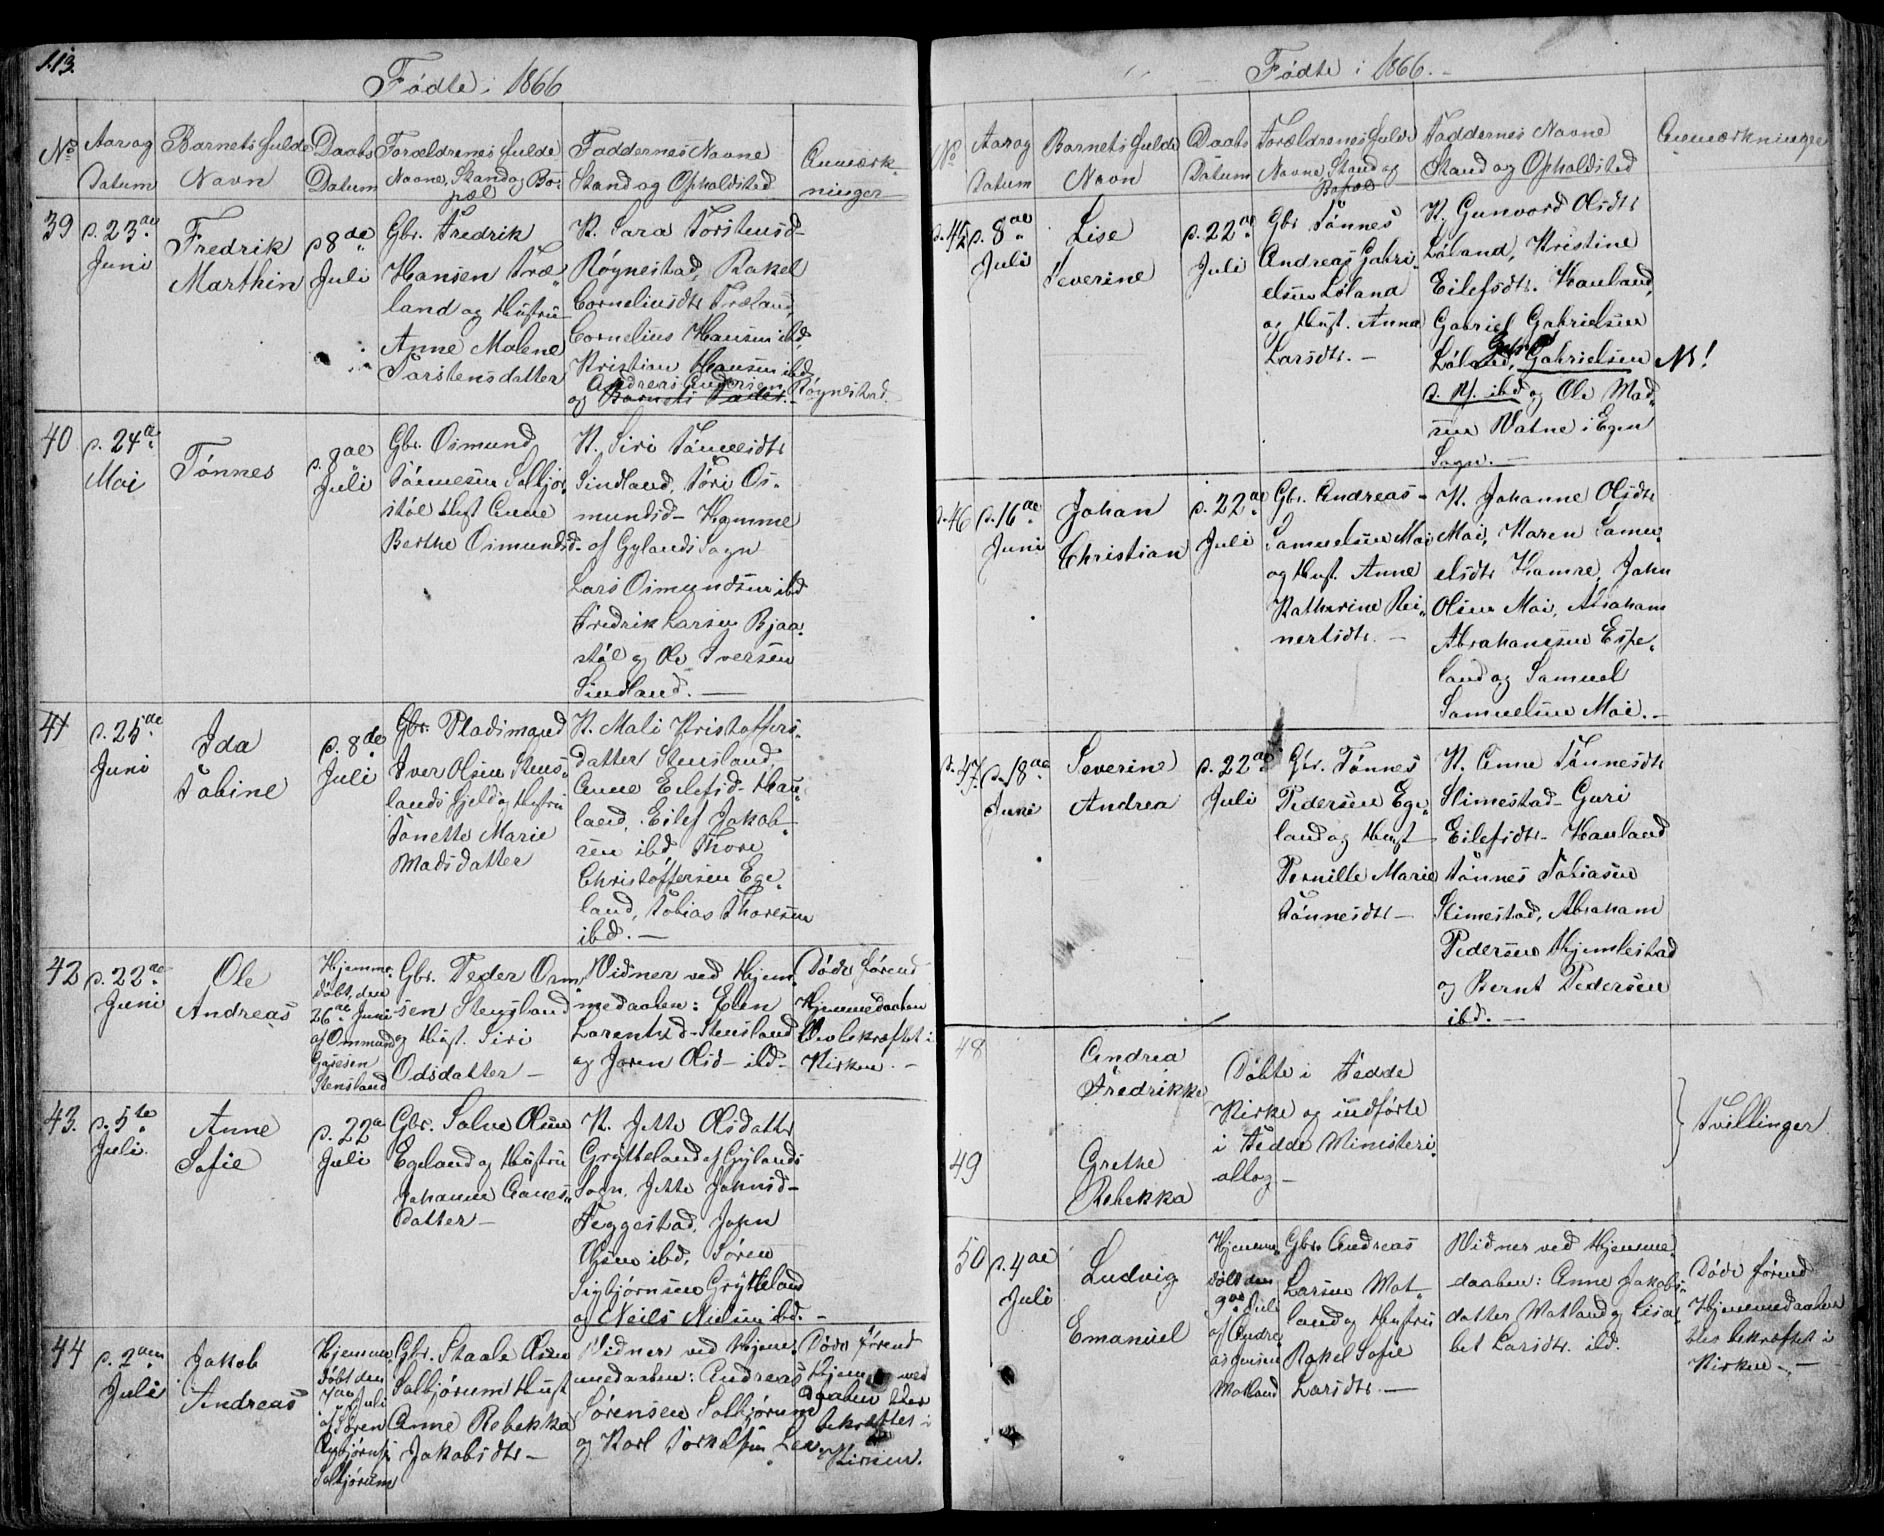 113.
Fødte i 1866
No
Aar og
Datum
Barnets fulde
Navn
Daabs
Datum
Forældrenes fulde
Navne, Stand og Bo-
pæl
Faddernes Navne
Stand og Opholdsted
Anmærk-
ninger
39
d. 23de
Juni
Fredrik
Marthin
d 8de
Juli
Gbr. Fredrik
Hansen Træ-
land og Hustru
Anne Malene
Torstensdatter
K. Sara Torstensd-
Røynestad, Rakel
Corneliusdtr Træland,
Cornelius Hansen ibd
Kristian Hansen ibd
Andreas Andersen Røynestad.
og Barnets Fader.
40
d. 24de
Mai
Tönnes
d. 8de
Juli
Gbr. Osmund
Tönnesen Salbjor-
støl Hust Anne
Berthe Osmundsd-
K. Siri Tönnesdtr
Sindland, Töri Os-
mundsd- Hamme
af Gylands Sogn
Lars Osmundsen ibd
Fredrik Larsen Bjaa-
støl og Ole Iversen
Sindland. -
41
d. 25de
Juni
Ida
Tobine
d. 8de
Juli
Gbr. Pladsmand
Iver Olsen Stens-
lands Fjeld og Hustru
Tonette Marie
Madsdatter
K. Mali Kristoffers-
datter Stensland,
Anne Eilefsd- Hau-
land, Eilef Jakob-
sen ibd Thore
Christoffersen Ege-
land, Tobias Thoresen
ibd. -
42
d. 22de
Juni
Ole
Andreas
Hjemme-
døbt den
26de Juni
af Ommund
Gjøesen
Stensland
Gbr. Peder Orm-
sen Stensland
og Hust. Siri
Odsdatter -
Vidner ved Hjem-
medaaben: Elen
Larentsd- Stensland
og Joren Olsd- ibd-
Døde førend
Hjemmedaaben
blev bekræftet i
Kirken. -
43.
d. 5te
Juli.
Anne
Sofie
d. 22de
Juli
Gbr. Salve Olsen
Egeland og Hustru
Johanne Aanes-
datter -
K. Jette Olsdatter
Grytteland af Gylands
Sogn. Jette Johnsd-
Feggestad, John
Olsen ibd, Sören
Sigbjørnsen Grytteland
og Neils Nielsen ibd. -
44
d. 2den
Juli
Jakob
Andreas
Hjemme-
døbt den
7de Juli
af Sören
Salbjørum
Gbr. Staale Olsen
Salbjørum Hust
Anne Rebekka
Jakobsdtr -
Vidner ved Hjem-
medaaben: Andreas
Sörensen Salbjørum
og Karl Torkelsen Lee
Døde førend
Hjemmed
daaben blev
bekræftet i
Kirken.
Fødte i 1866. -
No
Aar og
Datum
Barnets fulde
Navn
Daabs
Datum
Forældrenes fulde
Navne, Stand og
Bopæl
Faddernes Navne
Stand og Opholdsted
Anmærkninger
45
d. 8de
Juli
Lise
Severine
d. 22de
Juli
Gbr Tönnes
Andreas Gabri-
elsen Löland
og Hust. Anna
Larsdtr. -
K. Gunvord Olsdtr
Löland, Kristine
Eilefsdtr. Hauland,
Gabriel Gabrielsen
Löland, Gabrielsen
d. y. ibd og Ole Mad-
sen Vatne i Egen
Sogn. -
NB!
46
d. 16de
Juni
Johan
Christian
d. 22de
Juli
Gbr. Andreas
Samuelsen Moi
og Hust. Anne
Katherine Rei-
nertsdtr. -
K. Johanne Olsdtr
Moi, Maren Samu-
elsdtr Hamre, John
Olsen Moi, Abraham
Abrahamsen Espe-
land og Samuel
Samuelsen Moi. -
47
d. 18de
Juni
Severine
Andrea
d. 22de
Juli
Gbr. Tönnes
Pedersen Ege-
land og Hust
Pernille Marie
Tönnesdtr -
K. Anne Tönnesdtr
Slimestad- Guri
Eilefsdtr- Hauland
Tönnes Tobiasen
Slimestad, Abraham
Pedersen Hjemlestad
og Bernt Pedersen
ibd. -
48
Andrea
Fredrikke
49
Grethe
Rebekka
Döbte i Fedde
Kirke og indförte
i Fedde Ministeri-
albog -
Tvillinger
50
d. 4de
Juli
Ludvig
Emanuel
Hjemme-
døbt den
9de Juli
af Andre-
as Jensen
Motland
Gbr. Andreas
Larsen Mot-
land og Hustru
Rakel Sofie
Larsdtr. -
Vidner ved Hjemme-
daaben: Anne Jakobs-
datter Motland og Lisa-
bet Larsdtr. ibd.
Døde førend
Hjemmedaaben
blev bekræftet i
Kirken. -